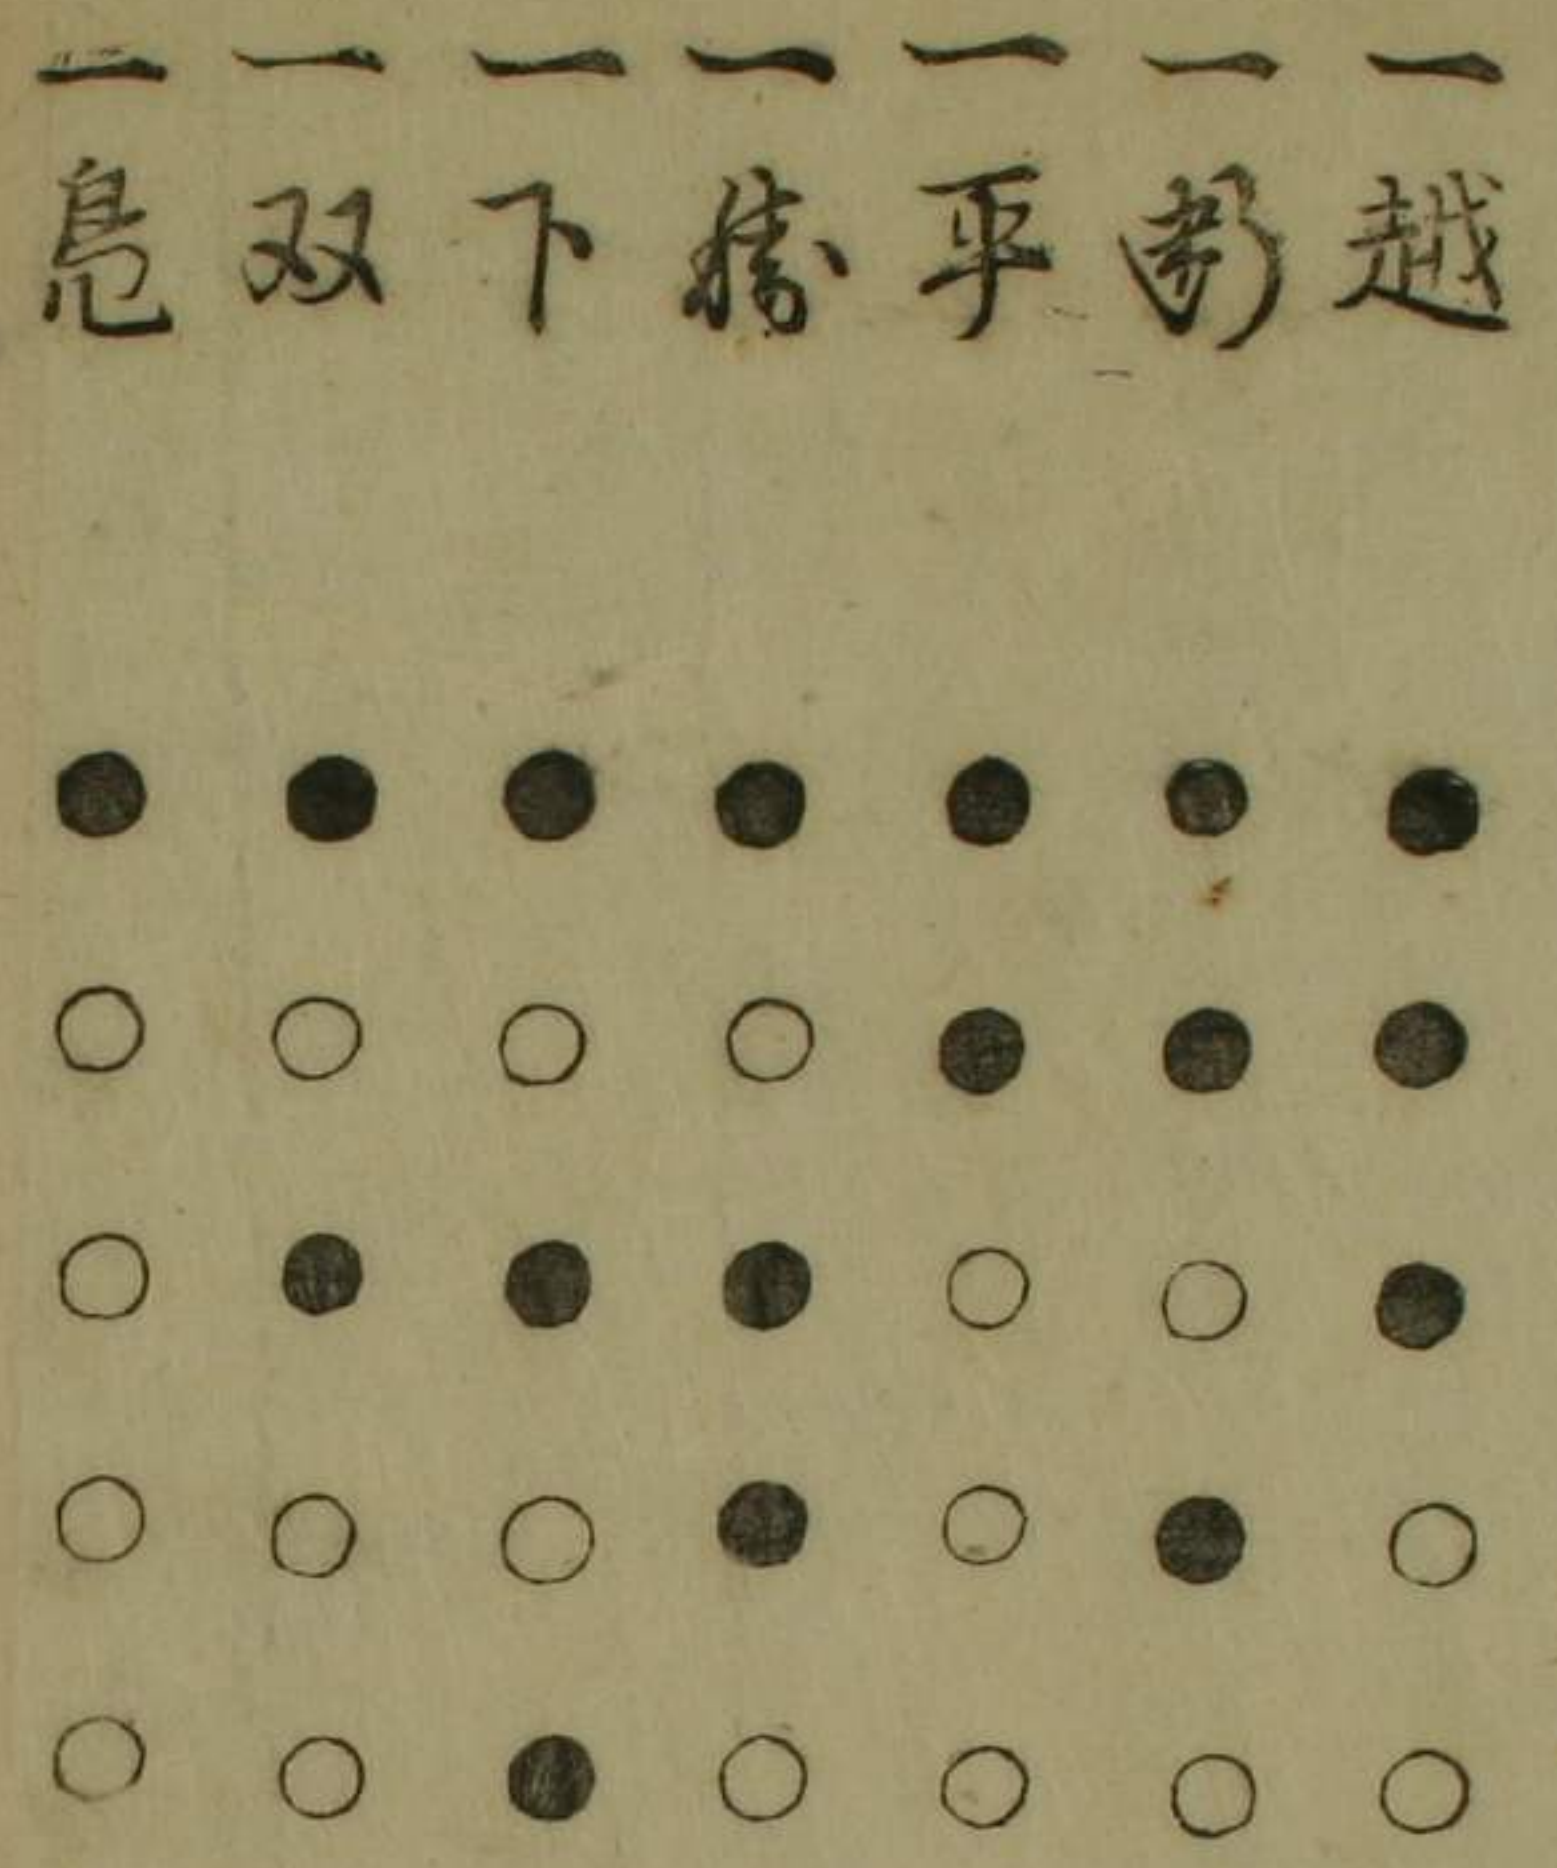 一越
一
一平
一勝
一下
一双
一鳧